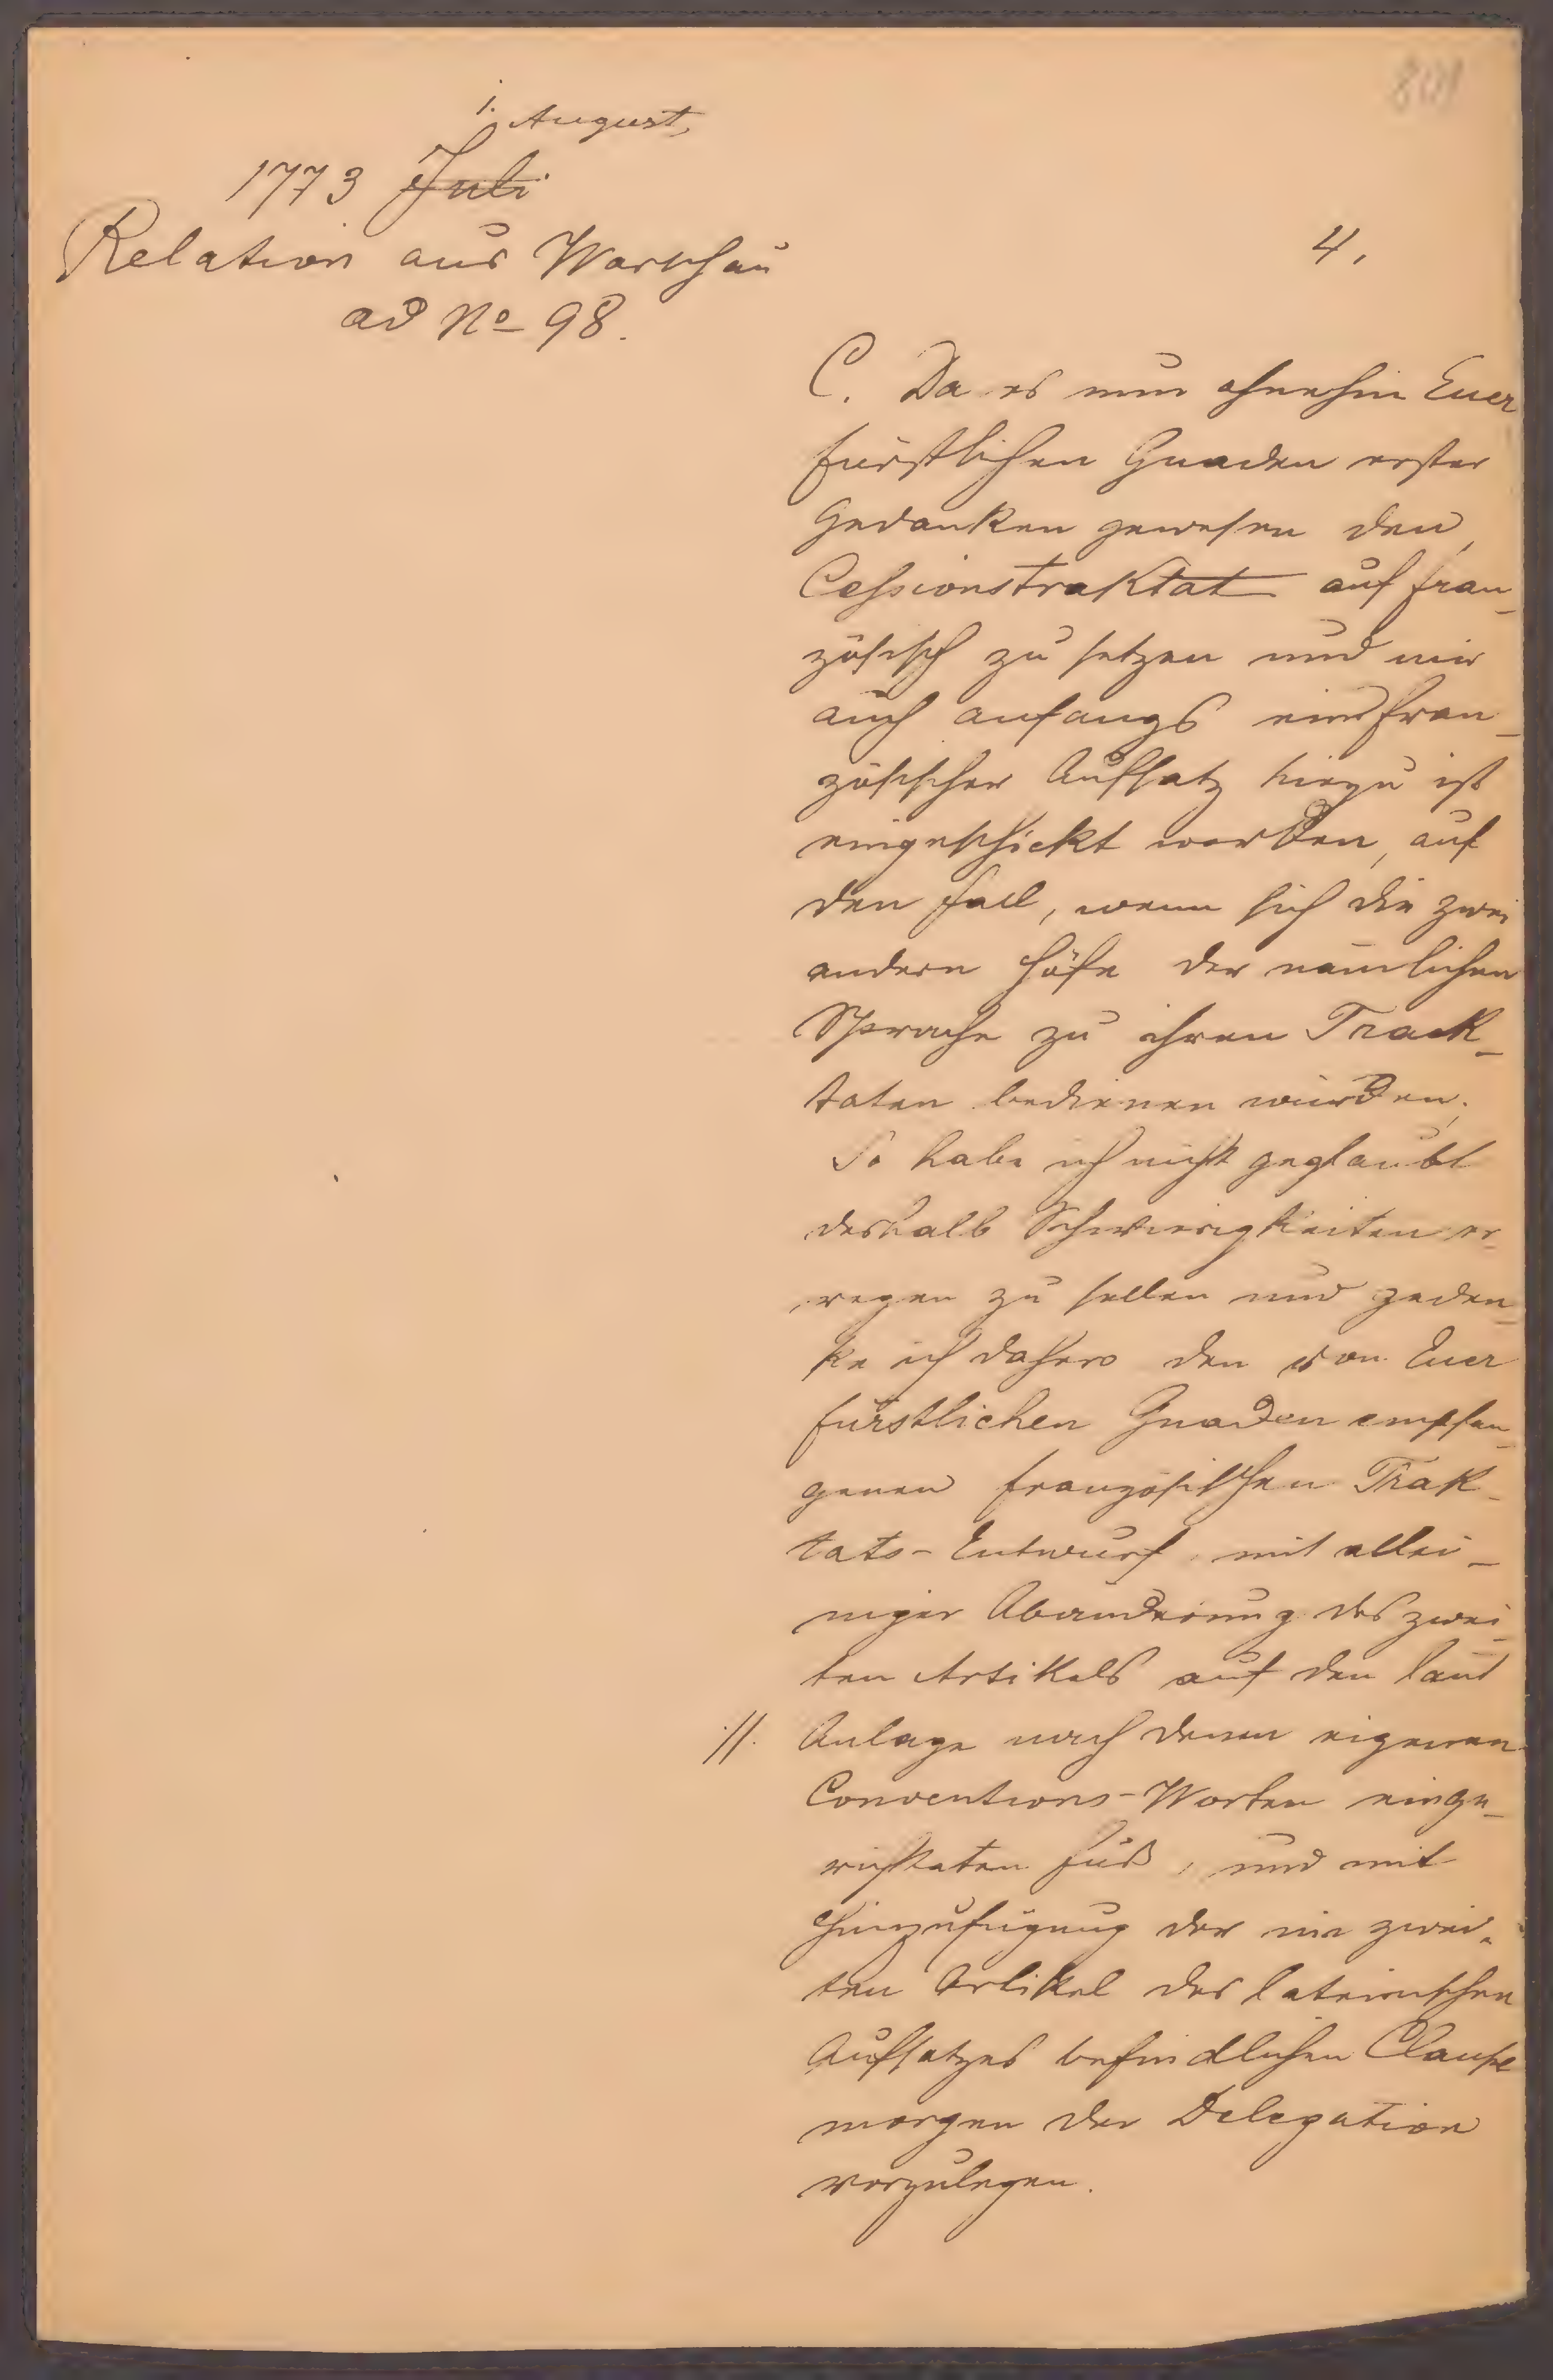 801
1. August,
1773 Juli
Relation aus Warschau
ad No 98.
4.
C. Da es nun ohnehin Euer
fürstlichen Gnaden erster
Gedanken gewesen den
Cessionstraktat auf fran-
zösisch zu setzen und mir
auch anfangs ein fran-
zösischer Aufsatz hiezu ist
eingeschickt worden, auf
den Fall, wenn sich die zwei
andern Höfe der nämlichen
Sprache zu ihren Track-
taten bedienen würden;
So habe ich nicht geglaubt
deshalb Schwierigkeiten er-
regen zu sollen und geden-
ke ich dahero den von Euer
fürstlichen Gnaden empfan-
genen französischen Trak-
tats-Entwurf, mit allei-
niger Abänderung des zwei-
ten Artikels auf den laut
·//. Anlage nach denen eigenen
Conventions-Worten einge-
richteten Fuß, und mit
Hinzufügung der im zwei-
ten Artikel des lateinischen
Aufsatzes befindlichen Clausel
morgen der Delegation
vorzulegen.